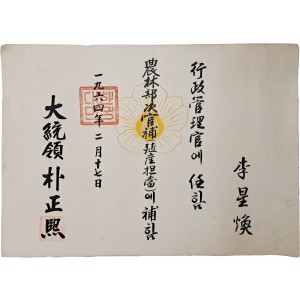 李星煥
行政管理官에 任함
農林部次官補(殖產担當)에 補함
一九六四年 二月 十七日
大統領 朴正熙